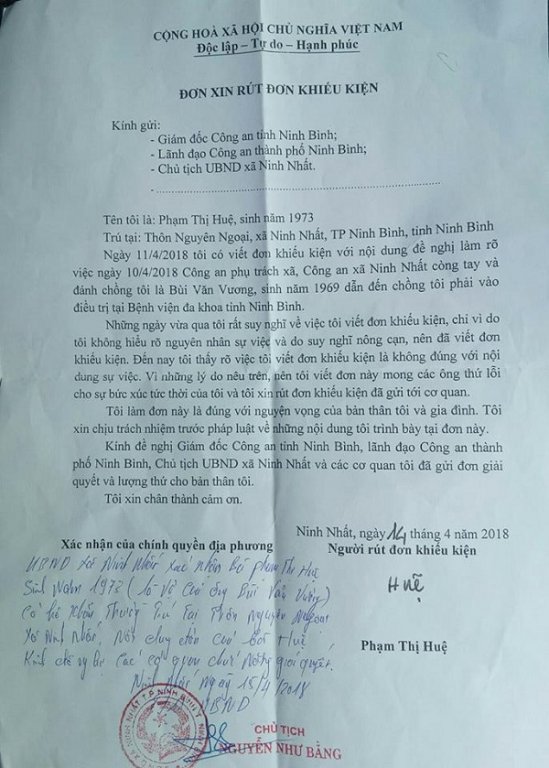 CỘNG HOÀ XÃ HỘI CHỦ NGHĨA VIỆT NAM
Độc lập – Tự do – Hạnh phúc
ĐƠN XIN RÚT ĐƠN KHIẾU KIỆN
Kính gửi:
- Giám đốc Công an tỉnh Ninh Bình;
- Lãnh đạo Công an thành phố Ninh Bình;
- Chủ tịch UBND xã Ninh Nhất.
- ..........................................................................
Tên tôi là: Phạm Thị Huệ, sinh năm 1973
Trú tại: Thôn Nguyên Ngoại, xã Ninh Nhất, TP Ninh Bình, tỉnh Ninh Bình
Ngày 11/4/2018 tôi có viết đơn khiếu kiện với nội dung đề nghị làm rõ
việc ngày 10/4/2018 Công an phụ trách xã, Công an xã Ninh Nhất còng tay và
đánh chồng tôi là Bùi Văn Vương, sinh năm 1969 dẫn đến chồng tôi phải vào
điều trị tại Bệnh viện đa khoa tỉnh Ninh Bình.
Những ngày vừa qua tôi rất suy nghĩ về việc tôi viết đơn khiếu kiện, chỉ vì do
tôi không hiểu rõ nguyên nhân sự việc và do suy nghĩ nông cạn, nên đã viết đơn
khiếu kiện. Đến nay tôi thấy rõ việc tôi viết đơn khiếu kiện là không đúng với nội
dung sự việc. Vì những lý do nêu trên, nên tôi viết đơn này mong các ông thứ lỗi
cho sự bức xúc tức thời của tôi và tôi xin rút đơn khiếu kiện đã gửi tới cơ quan.
Tôi làm đơn này là đúng với nguyện vọng của bản thân tôi và gia đình. Tôi
xin chịu trách nhiệm trước pháp luật về những nội dung tôi trình bày tại đơn này.
Kính đề nghị Giám đốc Công an tỉnh Ninh Bình, lãnh đạo Công an thành
phố Ninh Bình, Chủ tịch UBND xã Ninh Nhất và các cơ quan tôi đã gửi đơn giải
quyết và lượng thứ cho bản thân tôi.
Tôi xin chân thành cảm ơn.
Ninh Nhất, ngày 14 tháng 4 năm 2018
Xác nhận của chính quyền địa phương
Người rút đơn khiếu kiện
UBND xã Ninh Nhất xác nhận bà Phạm Thị Huệ
Sinh năm 1973 (là vợ của ông Bùi Văn Vương)
Có hộ khẩu thường trú tại thôn Nguyên Ngoại
xã Ninh Nhất, Nội dung đơn của bà Huệ
Kính đề nghị các cơ quan chức năng giải quyết.
Ninh Nhất ngày 15/4/2018
UBND
Huệ
Phạm Thị Huệ
CHỦ TỊCH
NGUYỄN NHƯ BẰNG